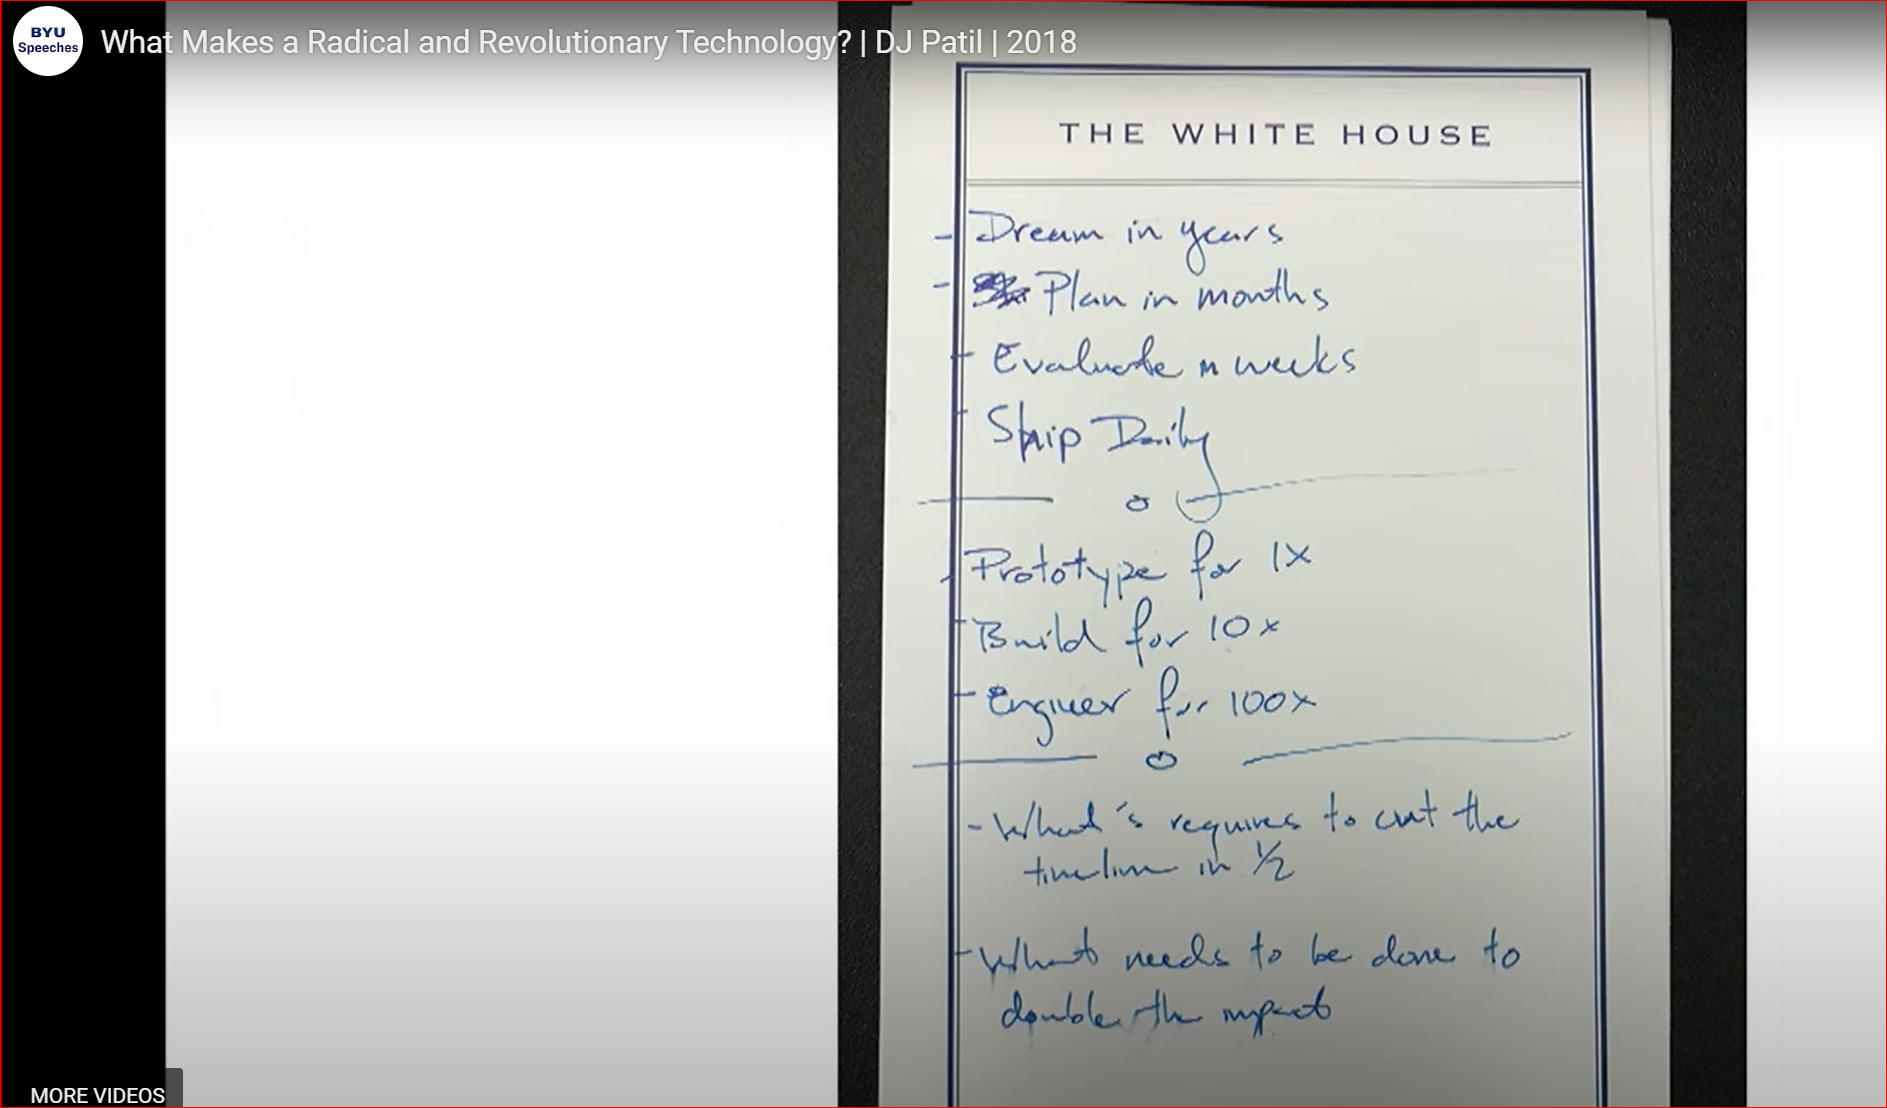 BYU
Speeches
What Makes a Radical and Revolutionary Technology? | DJ Patil | 2018
THE WHITE HOUSE
- Dream in years
- Plan in months
- Evaluate in weeks
- Ship Daily
- Prototype for 1x
- Build for 10x
- Engineer for 100x
- What's requires to cut the
timeline in 1/2
- What needs to be done to
double the impact
MORE VIDEOS